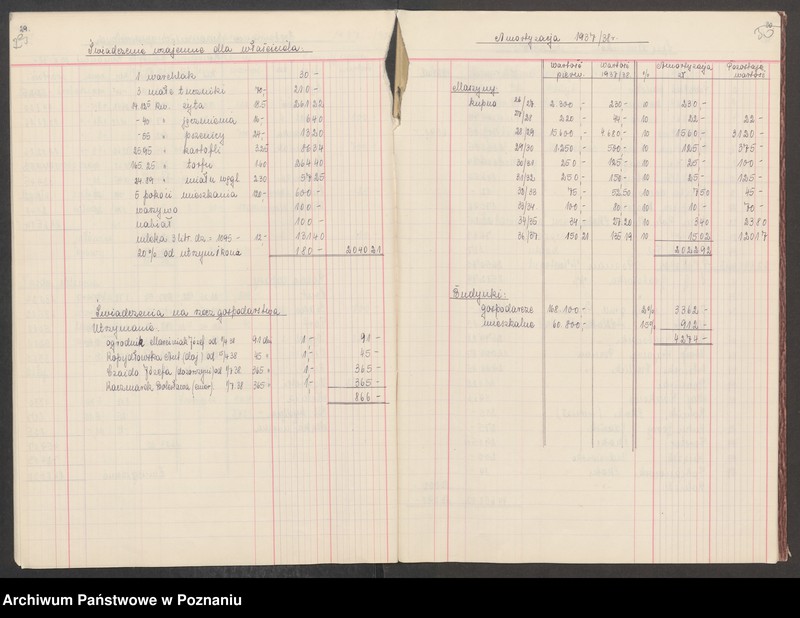 29.
Świadczenia wzajemne dla właściciela.
1 warchlak 30 -
3 małe tuczniki 70,- 210 -
żyta
-40 " jęczmienia 16,- 6 40
-55 " pszenicy 24,- 13 20
25 95 " kartofli 3 25
165.25 " torfu 1 60 264 40
24.89 " miału węgl. 2 30 57 25
5 pokoi mieszkania 120,- 600 -
warzywa 100 -
nabiał 100 -
mleka 3 ltr. dz. = 1095 - 12,- 131 40
20% od utrzymkowa 180 - 2040 21
Świadczenia na rzecz gospodarstwa
Utrzymanie.
ogrodnik Marciniak Józef od 91 dni 1 - 91 -
45 " 1 - 45 -
Józefa od 365 " 1 - 365 -
Kaczmarek 365 " 1 - 365 -
866 -
30.
Amortyzacja 1937/38 r.
wartość pierw. wartość 1937/38 % Amortyzacja zł Pozostaje wartość
Maszyny
kupno 26/27 2.300,- 230 - 10 230,-
27/28 220 - 44 - 10 22 - 22 -
28/29 15600,- 4680 - 10 1560 - 3120 -
29/30 1250,- 500 - 10 125 - 375 -
30/31 250,- 125 - 10 25 - 100 -
31/32 250,- 150 - 10 25 - 125 -
32/33 75,- 52.50 10 7 50 45 -
33/34 100,- 80 - 10 10,- 70 -
34/35 34,- 27.20 10 3 40 23 80
36/37 150 21 135 19 10 15 02 120 17
2022 92
Budynki:
gospodarcze 168.100,- 2% 3362 -
mieszkalne 60.800,- 1.5% 912,-
4274 -
Archiwum Państwowe w Poznaniu